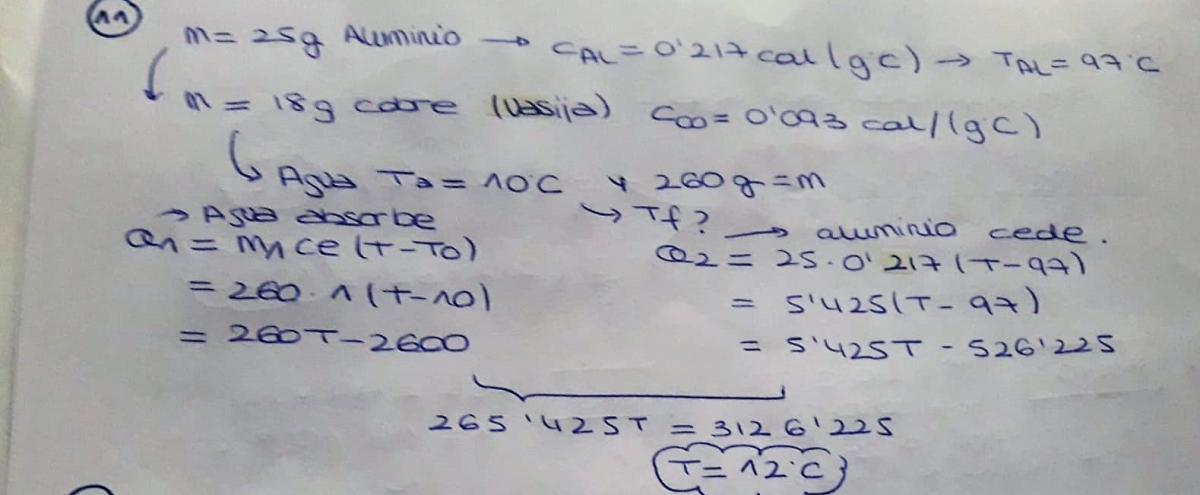 11
m = 25g Aluminio → CAL = 0'217 cal (g°C) → TAL = 97°C
m = 18g cobre (Vasija) CCO = 0'093 cal/(g°C)
Agua Ta = 10°C y 260g = m
→ Agua absorbe → Tf? → aluminio cede.
Q1 = m1 ce (T-T0) Q2 = 25·0'217 (T-97)
= 260·1 (T-10) = 5'425 (T-97)
= 260T-2600 = 5'425T - 526'225
265'425T = 3126'225
T = 12°C